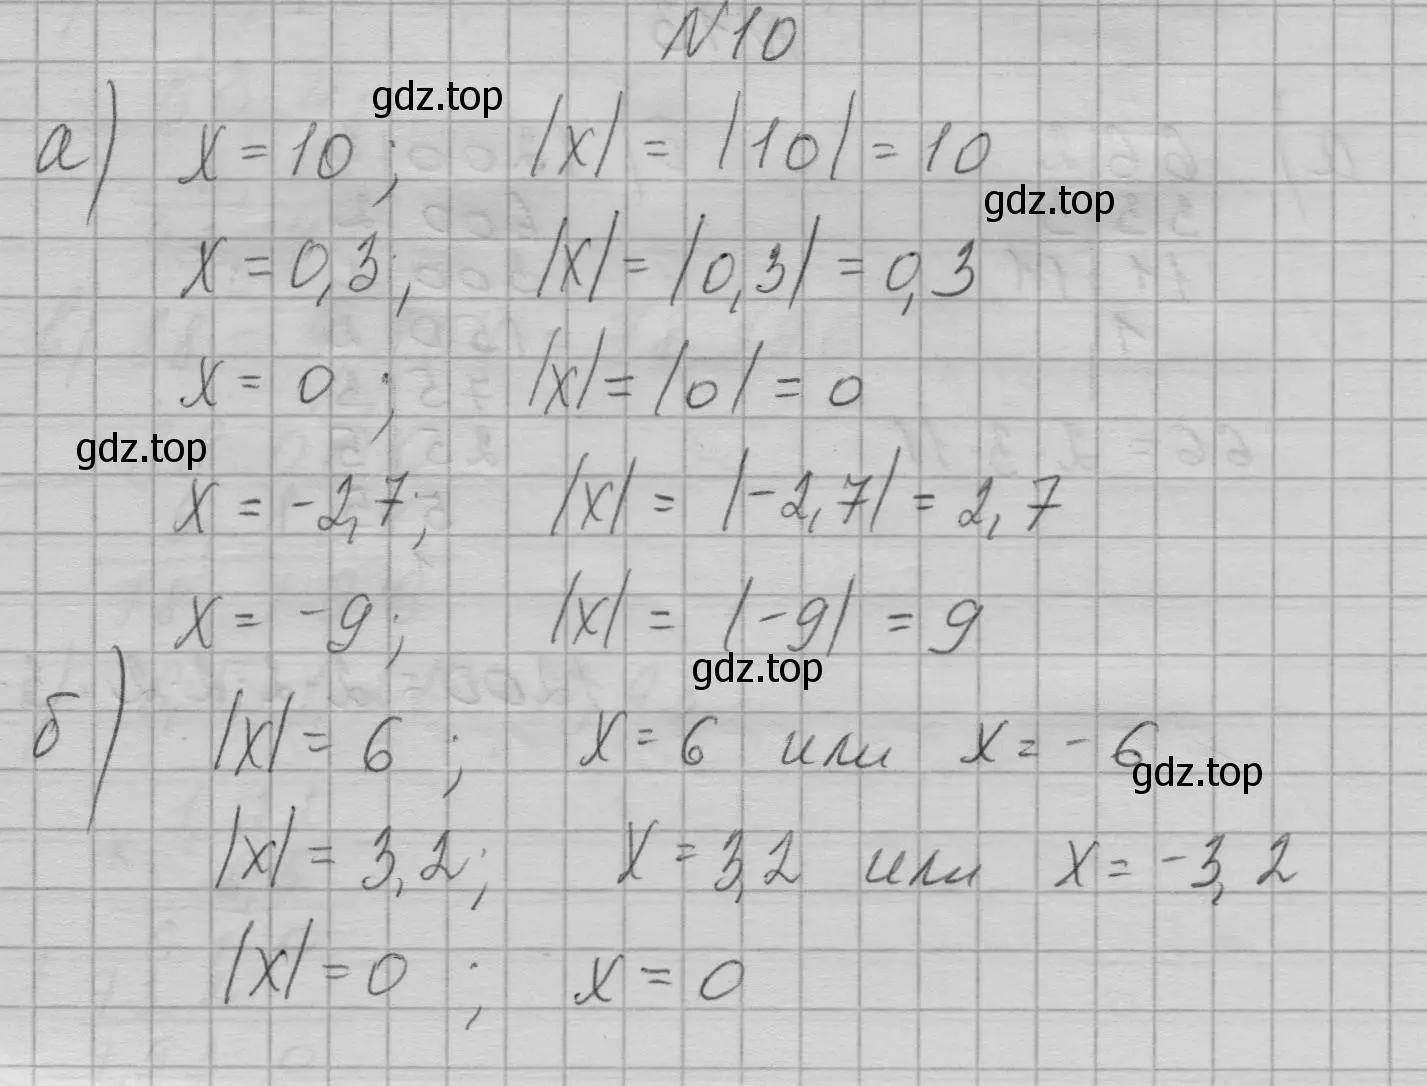 N10
gdz.top
а) x = 10; |x| = |10| = 10
gdz.top
x = 0,3; |x| = |0,3| = 0,3
x = 0; |x| = |0| = 0
gdz.top
x = -2,7; |x| = |-2,7| = 2,7
x = -9; |x| = |-9| = 9
gdz.top
б) |x| = 6; x = 6 или x = -6
gdz.top
|x| = 3,2; x = 3,2 или x = -3,2
|x| = 0; x = 0